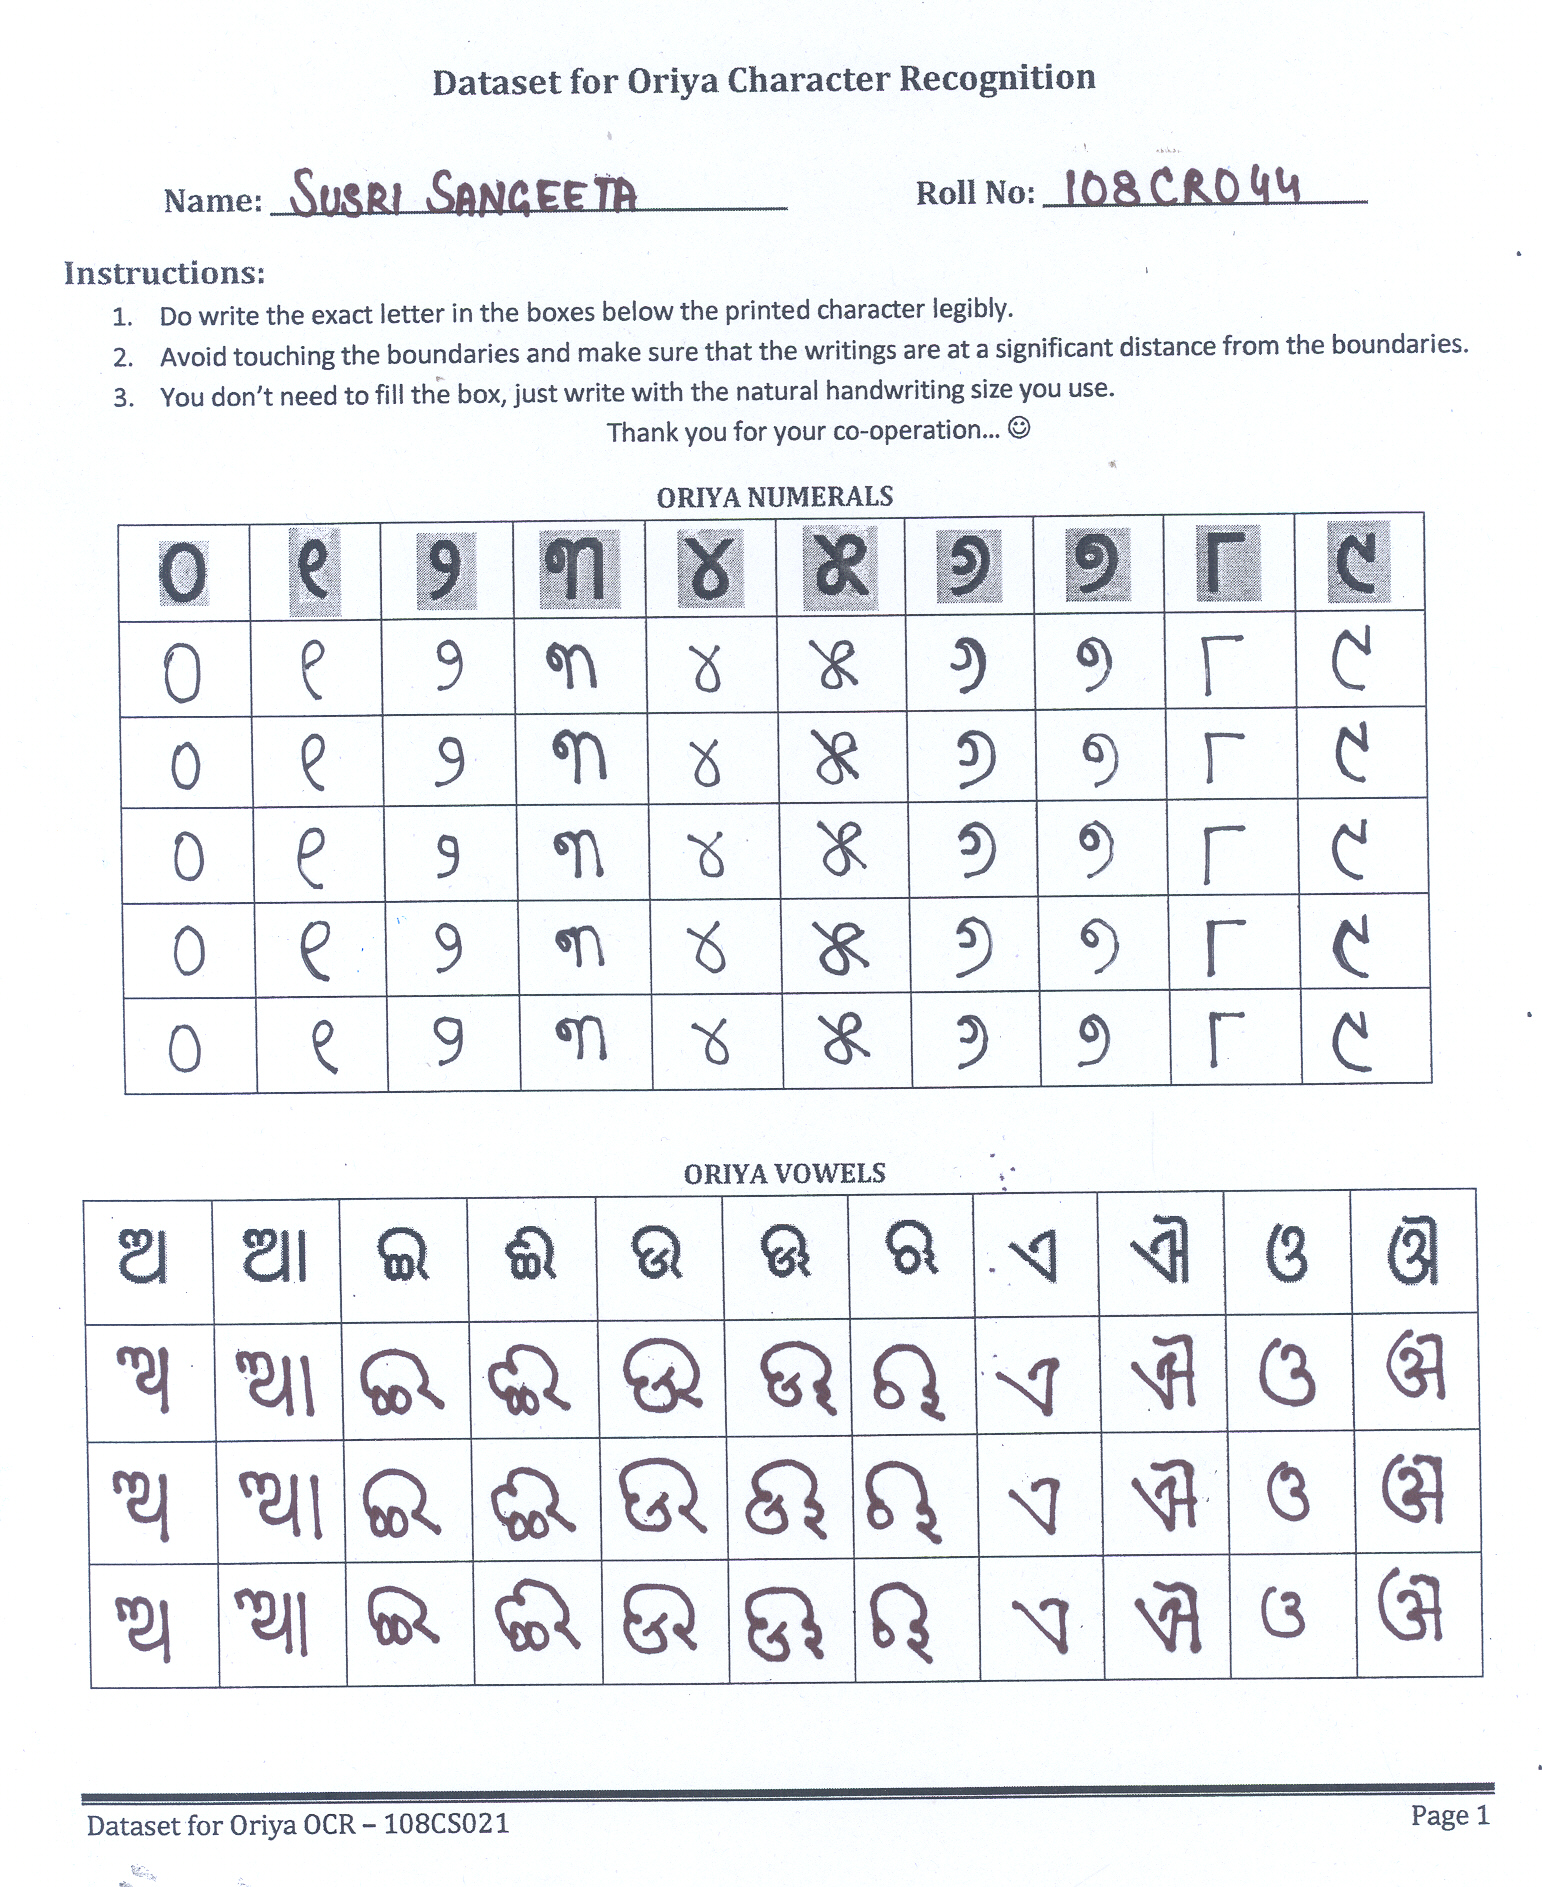 Dataset for Oriya Character Recognition
Name: SUSRI SANGEETA Roll No: 108CR044
Instructions:
1. Do write the exact letter in the boxes below the printed character legibly.
2. Avoid touching the boundaries and make sure that the writings are at a significant distance from the boundaries.
3. You don't need to fill the box, just write with the natural handwriting size you use.
Thank you for your co-operation... ☺
ORIYA NUMERALS
୦ ୧ ୨ ୩ ୪ ୫ ୬ ୭ ୮ ୯
୦ ୧ ୨ ୩ ୪ ୫ ୬ ୭ ୮ ୯
୦ ୧ ୨ ୩ ୪ ୫ ୬ ୭ ୮ ୯
୦ ୧ ୨ ୩ ୪ ୫ ୬ ୭ ୮ ୯
୦ ୧ ୨ ୩ ୪ ୫ ୬ ୭ ୮ ୯
୦ ୧ ୨ ୩ ୪ ୫ ୬ ୭ ୮ ୯
ORIYA VOWELS
ଅ ଆ ଇ ଈ ଉ ଊ ଋ ଏ ଐ ଓ ଔ
ଅ ଆ ଇ ଈ ଉ ଊ ଋ ଏ ଐ ଓ ଔ
ଅ ଆ ଇ ଈ ଉ ଊ ଋ ଏ ଐ ଓ ଔ
ଅ ଆ ଇ ଈ ଉ ଊ ଋ ଏ ଐ ଓ ଔ
Dataset for Oriya OCR – 108CS021 Page 1